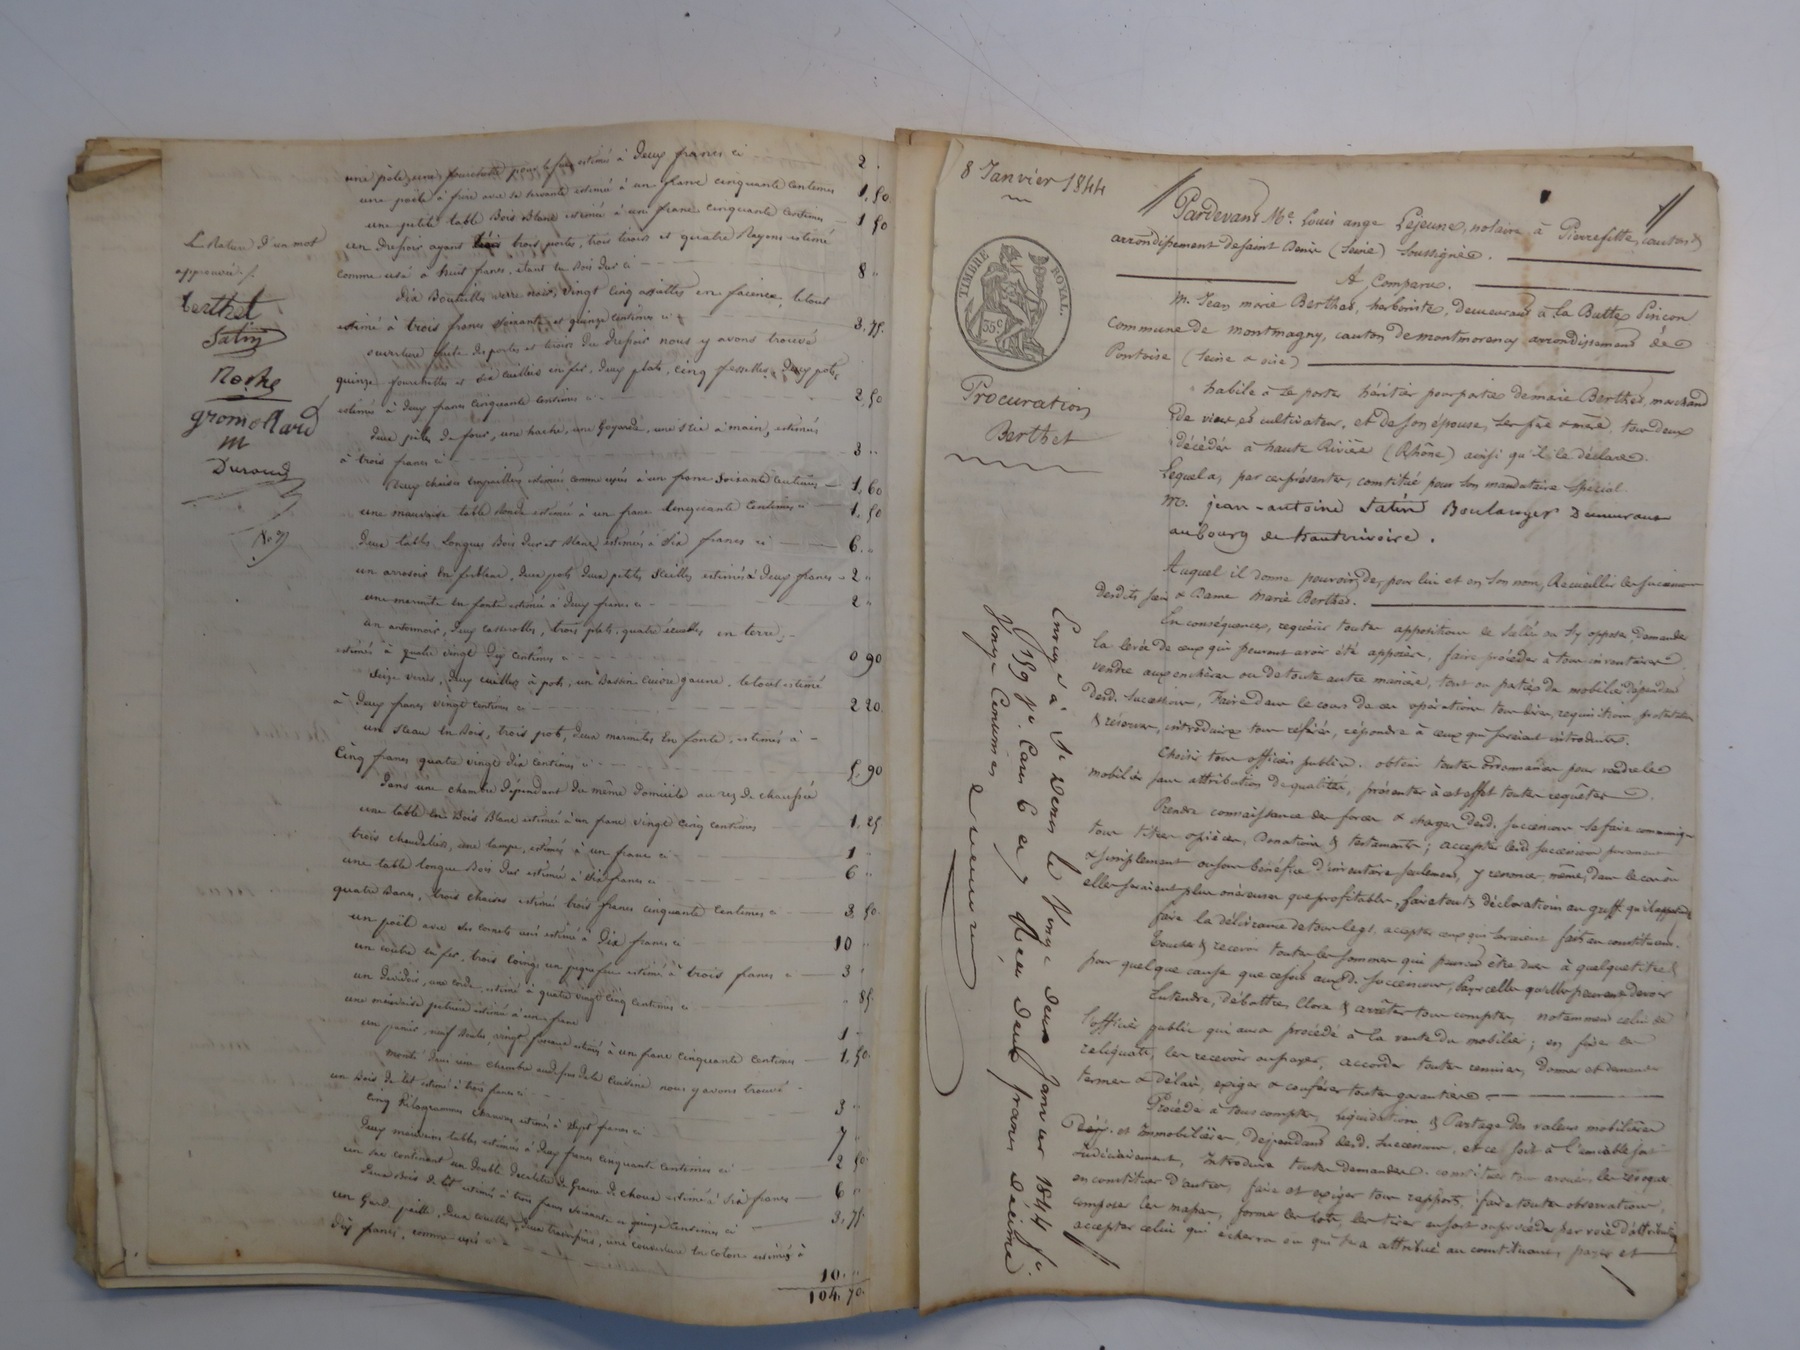 une pêle, une fourchette pour le feu estimés à Deux francs ci 2 "
une poële à frire avec sa servante estimés à un franc cinquante centimes 1,50
une petite table Bois Blanc estimée à un franc cinquante centimes 1 50
un Dressoir ayant trois portes, trois tiroirs et quatre Rayons estimé
comme usé à huit francs, étant en Bois Dur ci 8 "
Dix Bouteilles verre noir, vingt cinq assiettes en faïence, le tout
estimé à trois francs soixante et quinze centimes ci 3,75
ouverture faite des portes et tiroirs du Dressoir nous y avons trouvé
quinze fourchettes et six cuillers en fer, Deux plats, cinq Deux pots,
estimés à Deux francs cinquante centimes 2,50
Deux pelles De four, une hache, une Goyarde, une scie à main, estimés
à trois francs ci 3 "
Deux chaises estimées comme usées à un franc soixante centimes 1,60
une mauvaise table ronde estimée à un franc cinquante centimes ci 1,50
Deux tables Longues Bois Dur et Blanc estimées à six francs ci 6 "
un arrosoir en ferblanc, Deux pots Deux petites Seilles estimés à Deux francs 2 "
une marmite en fonte estimée à Deux francs ci 2 "
un entonnoir, Deux casserolles, trois plats, quatre écuelles en terre,
estimés à quatre vingt Dix centimes ci 0 90
Seize verres, Deux cuillers à pots, un Bassin cuivre jaune, le tout estimé
à Deux francs vingt centimes ci 2 20
un Seau en Bois, trois pots, Deux marmites En fonte, estimés à
Cinq francs quatre vingt dix centimes ci 5,90
Dans une chambre Dépendant Du même Domicile au rez De chaussée
une table en Bois Blanc estimée à un franc vingt cinq centimes 1,25
trois chandeliers, une lampe, estimés à un franc ci 1 "
une table longue Bois Dur estimée à six francs ci 6 "
quatre Bancs, trois chaises estimés trois francs cinquante centimes ci 3,50
un poêle avec ses cornets usés estimé à Dix francs ci 10 "
un coutre en fer, trois coings, un estimés à trois francs ci 3 "
un Devidoir, une corde, estimés à quatre vingt cinq centimes ci " 85
une mauvaise estimée à un franc 1 "
un panier, neuf vingt estimés à un franc cinquante centimes 1,50
monté Dans une chambre au dessus De la Cuisine nous y avons trouvé
un Bois de lit estimé à trois francs ci 3 "
Cinq Kilogrammes chanvre estimés à Sept francs ci 7 "
Deux mauvaises tables estimées à Deux francs cinquante centimes ci 2 50
un sac contenant un Double Décalitre De Graine De choux estimé à six francs 6 "
Deux Bois de lit estimés à trois francs soixante et quinze centimes ci 3,75
un Gard paille, Deux couettes, Deux traversins, une couverture En coton estimés à
Dix francs, comme usés ci 10 "
104,70
L Rature D'un mot
approuvée
berthet
Satin
Noshe
gromollard
m
Durand
8 Janvier 1844
TIMBRE ROYAL
35c
Procuration
Berthet
Enreg.é à St Denis le Onze Janvier 1844 fo.
159 Vo. Cases 6 et 7 Reçu deux francs décime
Vingt Centimes
Pardevant Me. Louis ange Lejeune, notaire à Pierrefitte, canton &
arrondissement de Saint Denis (Seine) Soussigné.
A Comparu.
M. Jean marie Berthet, herboriste, demeurant à la Butte Pinçon
commune de montmagny, canton de montmorency arrondissement de
Pontoise (Seine & oise)
habile à se porter héritier pour partie de marie Berthet, marchand
de vin & cultivateur, et de son épouse, ses père & mère, tous deux
décédés à haute Rivière (Rhône) ainsi qu'il le déclare.
Lequel a, par ces présentes, constitué pour son mandataire spécial
M. jean-antoine Satin Boulanger Demeurant
au bourg de hauterivoire.
Auquel il donne pouvoir de, pour lui et en son nom, Recueillir les successions
desdits Sieur & Dame Marie Berthet.
En conséquence, requérir toutes appositions de scellés ou s'y opposer, demander
la levée de ceux qui peuvent avoir été apposés, faire procéder à tous inventaires
vendre aux enchères ou de toute autre manière, tout ou partie du mobilier dépendant
desd. successions, Faire dans le cours de ces opérations tous dires, réquisitions, protestations
& réserves, introduire tous référés, répondre à ceux qui seraient introduits.
Choisir tous officiers publics, obtenir toutes ordonnances pour vendre le
mobilier sans attribution de qualités, présenter à cet effet toutes requêtes.
Prendre connaissance des forces & charges desd. successions se faire communiquer
tous titres & pièces, Donations & testaments; accepter lesd. successions purement
& simplement ou sous bénéfice d'inventaire seulement, y renoncer même, dans le cas où
elles seraient plus onéreuses que profitables, faire toutes déclarations au greffe
faire la délivrance de tous legs, accepter ceux qui seraient faits au constituant.
toucher & recevoir toutes les sommes qui pourront être dues à quelque titre &
pour quelque cause que ce soit auxd. successions, payer celles qu'elles peuvent devoir
Entendre, débattre, Clore & arrêter tous comptes, notamment celui de
l'officier public qui aura procédé à la vente du mobilier; en fixer les
reliquats, les recevoir ou payer, accorder toutes remises, donner et demander
termes & délais, exiger & conférer toutes garanties
Procéder à tous comptes, liquidations & Partage des valeurs mobilières
et Immobilières, dépendant desd. successions, et ce soit à l'amiable soit
Judiciairement, Introduire toutes demandes, constituer tous avoués, les révoquer
en constituer d'autres, faire et exiger tous rapports, faire toutes observations,
composer les masses, former les lots, les tirer au sort ou procéder par voie d'attribution
accepter celui qui écherra ou qui sera attribué au constituant, payer et